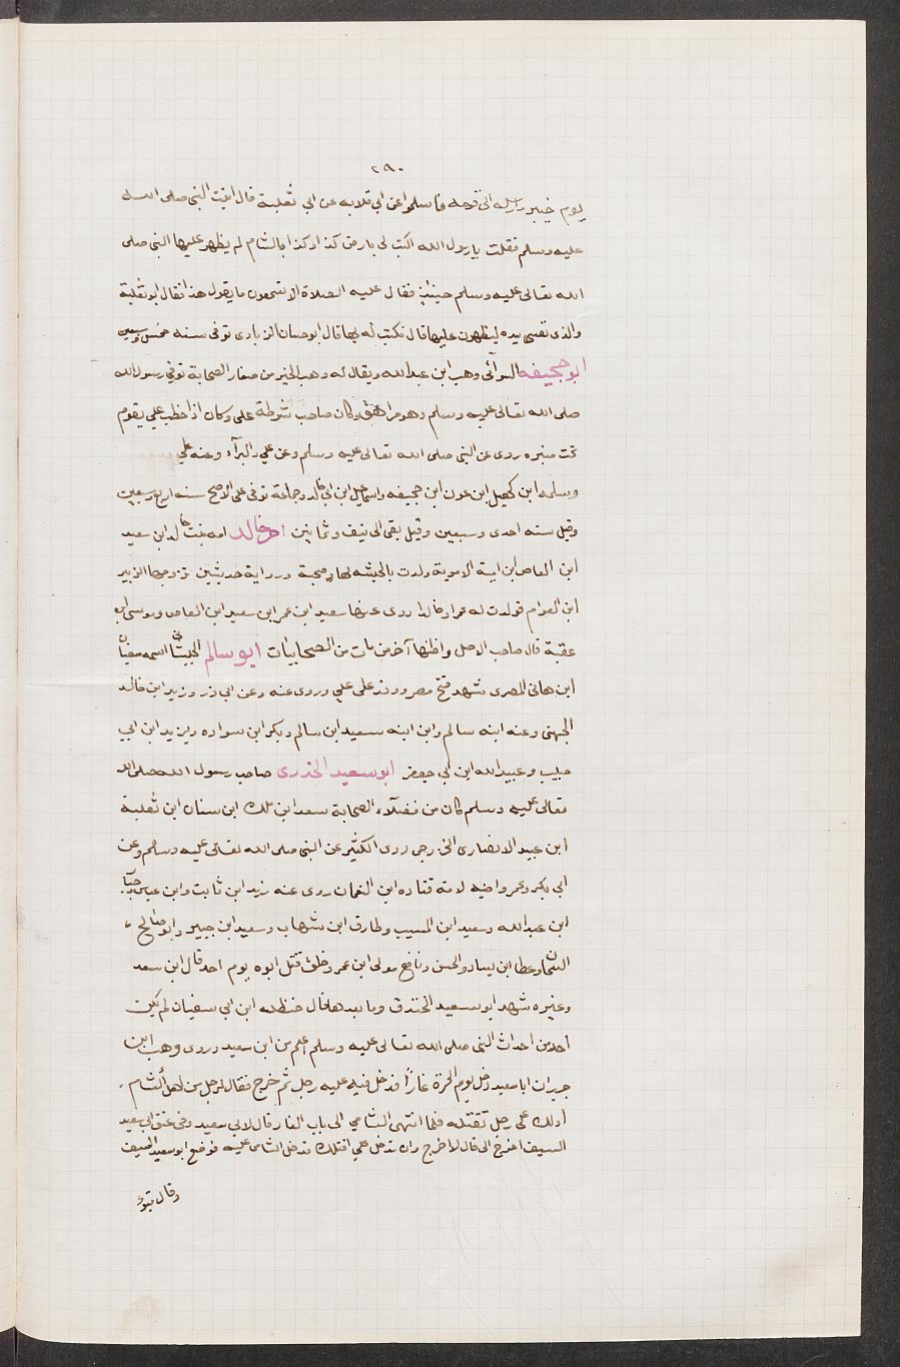 ٢٩٠
يوم خيبر وارسله الى قومه فاسلموا عن ابي قلابه عن ابي ثعلبة قال اتيت النبي صلى الله
عليه وسلم فقلت يا رسول الله اكتب لى بارض كذا وكذا بالشام لم يظهر عليها النبي صلى
الله تعالى عليه وسلم حينئذ فقال عليه الصلاة الا تسمعون ما يقول هذا فقال ابو ثعلبة
والذى نفسي بيده ليظهرن عليها قال فكتب له بها قال ابو حسان الزيادى توفى سنه خمس وسبعين
ابو جحيفه السوآئى وهب ابن عبد الله ويقال له وهب الخير من صغار الصحابة توفي رسول الله
صلى الله تعالى عليه وسلم وهو مراهق وكان صاحب شرطة على وكان اذا خطب علي يقوم
تحت منبره روى عن النبي صلى الله تعالى عليه وسلم وعن علي والبرآء وعنه علي
وسلمه ابن كهيل ابن عون ابن جحيفه واسماعيل ابن ابي خالد وجماعة توفى على الاصح سنه اربع وسبعين
وقيل سنه احدى وسبعين وقيل بقى الى نيف وثمانين ام خالد امه بنت خالد ابن سعيد
ابن العاص ابن امية الاموية ولدت بالحبشه لها صحبة ورواية حديثين تزوجها الزبير
ابن العوام فولدت له عمرا وخالدا روى عنها سعيد ابن عمر ابن سعيد ابن العاص وموسى ابن
عقبة قال صاحب الاصل واظنها آخر من مات من الصحابيات ابو سالم الجيشاني اسمه سفيان
ابن هانى المصرى شهد فتح مصر ووفد على علي وروى عنه وعن ابي ذر وزيد ابن خالد
الجهنى وعنه ابنه سالم وابن ابنه سعيد ابن سالم وبكر ابن سواده ويزيد ابن ابي
حبيب وعبيد الله ابن ابي جعفر ابو سعيد الخدرى صاحب رسول الله صلى الله
تعالى عليه وسلم كان من فضلآء الصحابة سعد ابن ملك ابن سنان ابن ثعلبة
ابن عبيد الانصارى الخزرجى روى الكثير عن النبي صلى الله تعالى عليه وسلم وعن
ابى بكر وعمر واخيه لامه قتاده ابن النعمان روى عنه زيد ابن ثابت وابن عباس وجابر
ابن عبد الله وسعيد ابن المسيب وطارق ابن شهاب وسعيد ابن جبير وابو صالح
السمان وعطا ابن يسار والحسن ونافع مولى ابن عمر وخلق قتل ابوه يوم احد قال ابن سعد
وغيره شهد ابو سعيد الخندق وما بعدها قال حنظله ابن ابي سفيان لم يكن
احد من احداث النبي صلى الله تعالى عليه وسلم اعلم من ابن سعيد وروى وهب ابن
جيران ابا سعيد دخل يوم الحرة غارا فدخل فيه عليه رجل ثم خرج فقال لرجل من اهل الشام
أدلك على رجل تقتله فلما انتهى الشامي الى باب الغار قال لابي سعيد وفى عنق ابي سعيد
السيف اخرج الى قال لا اخرج وان تدخل علي اقتلك فدخل الشامى عليه فوضع ابو سعيد السيف
وقال تبوء